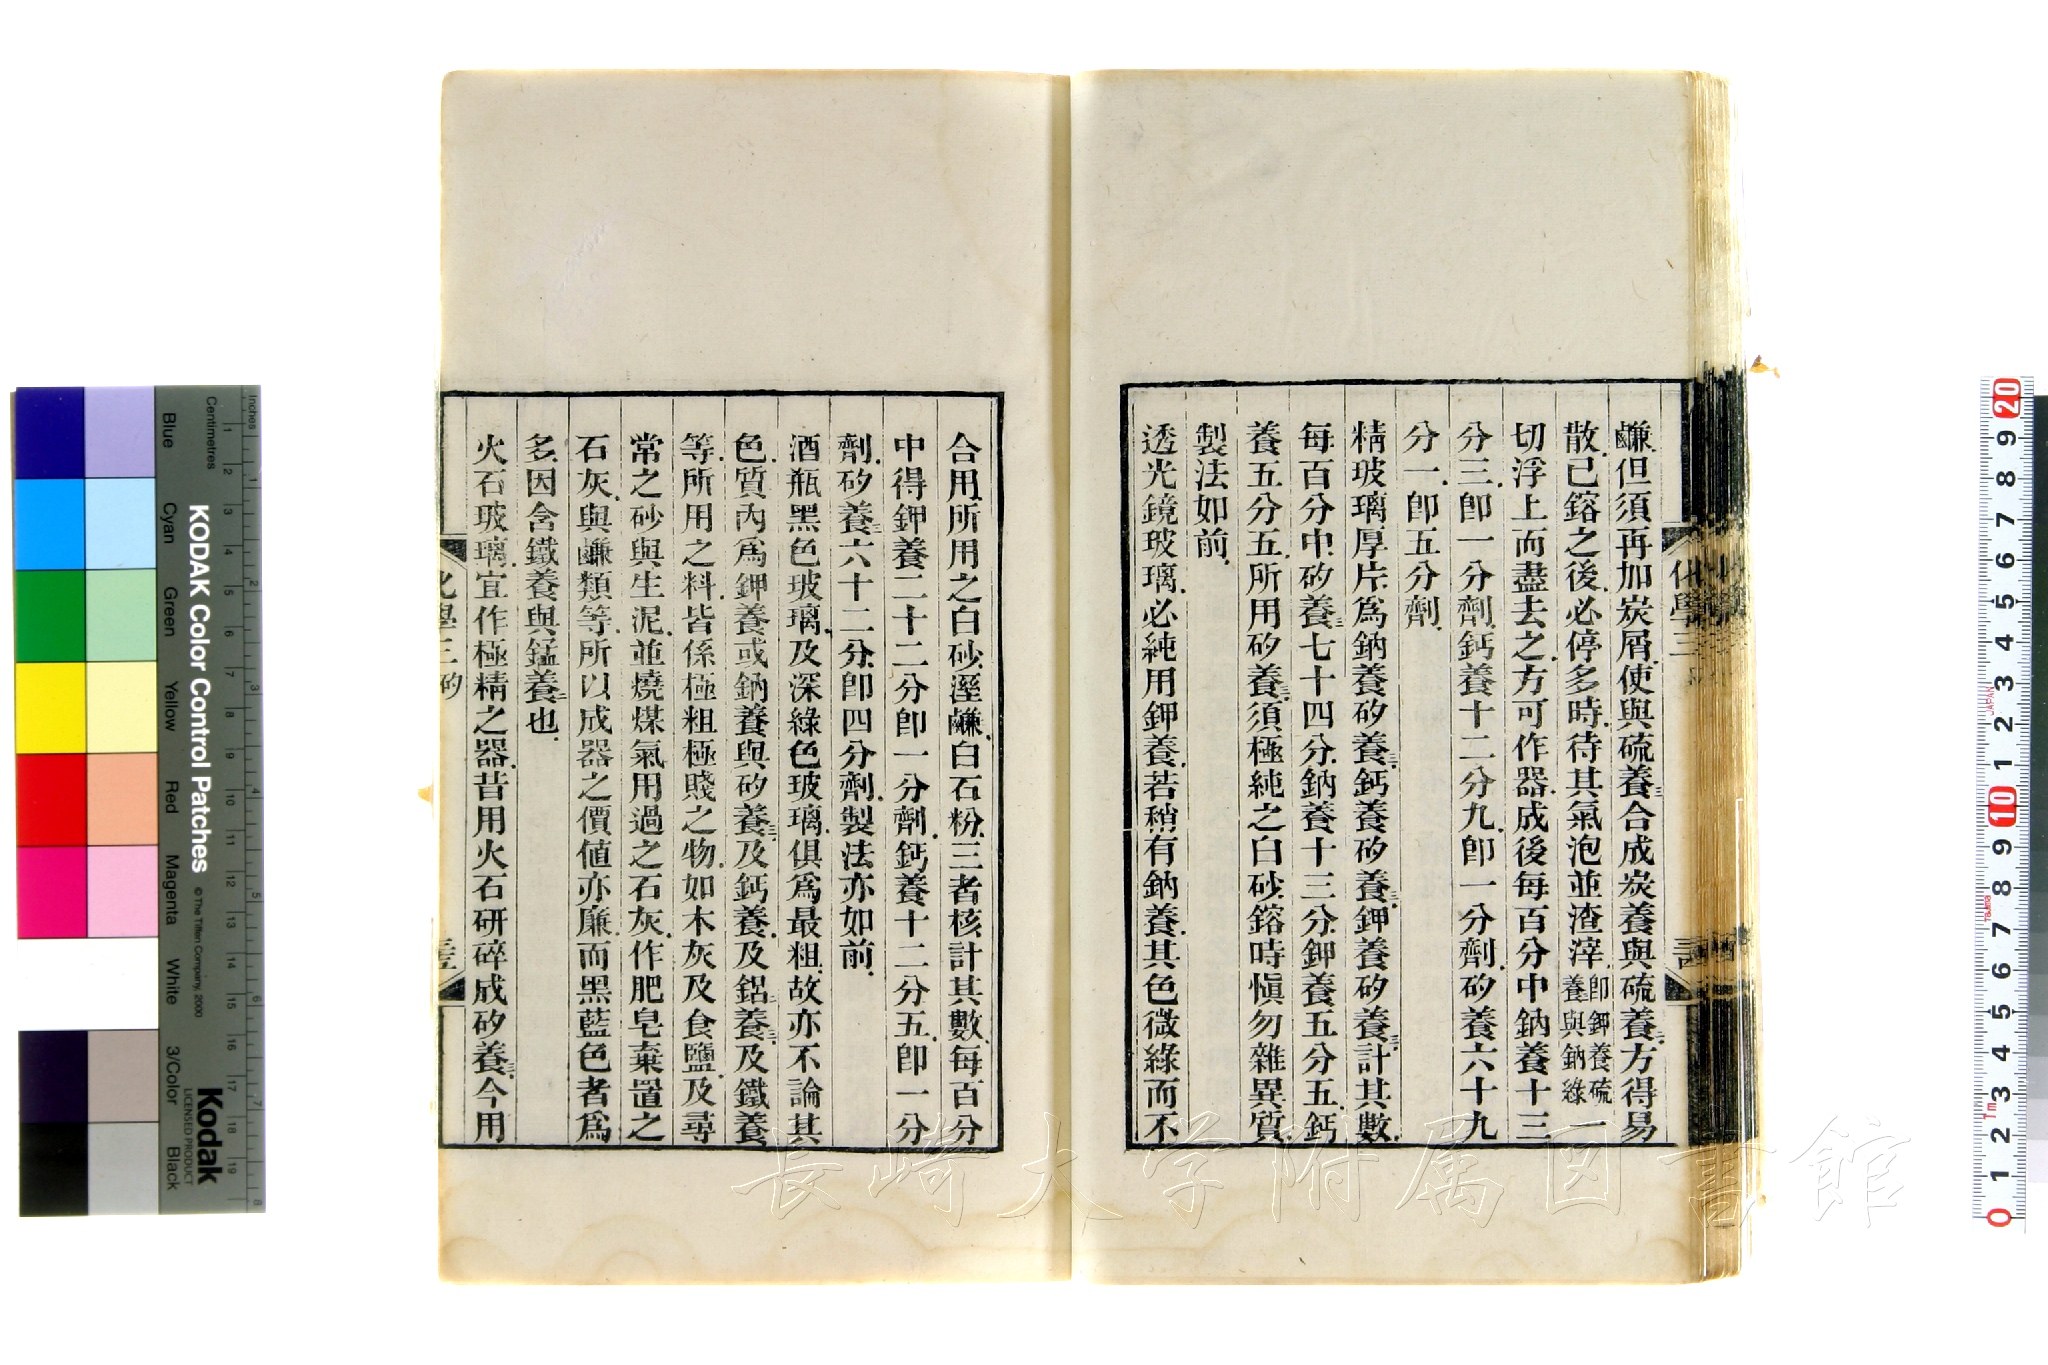 鹻但須再加炭屑使與硫養三合成炭養與硫養二方得易
散已鎔之後必停多時待其氣泡並渣滓卽鉀養硫養與鈉綠一
切浮上而盡去之方可作器成後每百分中鈉養十三
分三卽一分劑鈣養十二分九卽一分劑矽養六十九
分一卽五分劑
精玻璃厚片爲鈉養矽養三鈣養矽養三鉀養矽養三計其數
每百分中矽養三七十四分鈉養十三分鉀養五分五鈣
養五分五所用矽養三須極純之白砂鎔時愼勿雜異質
製法如前
透光鏡玻璃必純用鉀養若稍有鈉養其色微綠而不
化學三
合用所用之白砂溼鹻白石粉三者核計其數每百分
中得鉀養二十二分卽一分劑鈣養十二分五卽一分
劑矽養三六十二分卽四分劑製法亦如前
酒瓶黑色玻璃及深綠色玻璃俱爲最粗故亦不論其
色質內爲鉀養或鈉養與矽養三及鈣養及鋁養三及鐵養
等所用之料皆係極粗極賤之物如木灰及食鹽及尋
常之砂與生泥並燒煤氣用過之石灰作肥皂棄置之
石灰與鹻類等所以成器之價值亦廉而黑藍色者爲
多因含鐵養與錳養三也
火石玻璃宜作極精之器昔用火石研碎成矽養三今用
化學三 矽
長崎大学附属図書館
KODAK Color Control Patches
© The Tiffen Company, 2000
Kodak
LICENSED PRODUCT
Blue Cyan Green Yellow Red Magenta White 3/Color Black
Inches 1 2 3 4 5 6 7 8
Centimetres 1 2 3 4 5 6 7 8 9 10 11 12 13 14 15 16 17 18 19
20 9 8 7 6 5 4 3 2 1 10 9 8 7 6 5 4 3 2 1 0
JAPAN